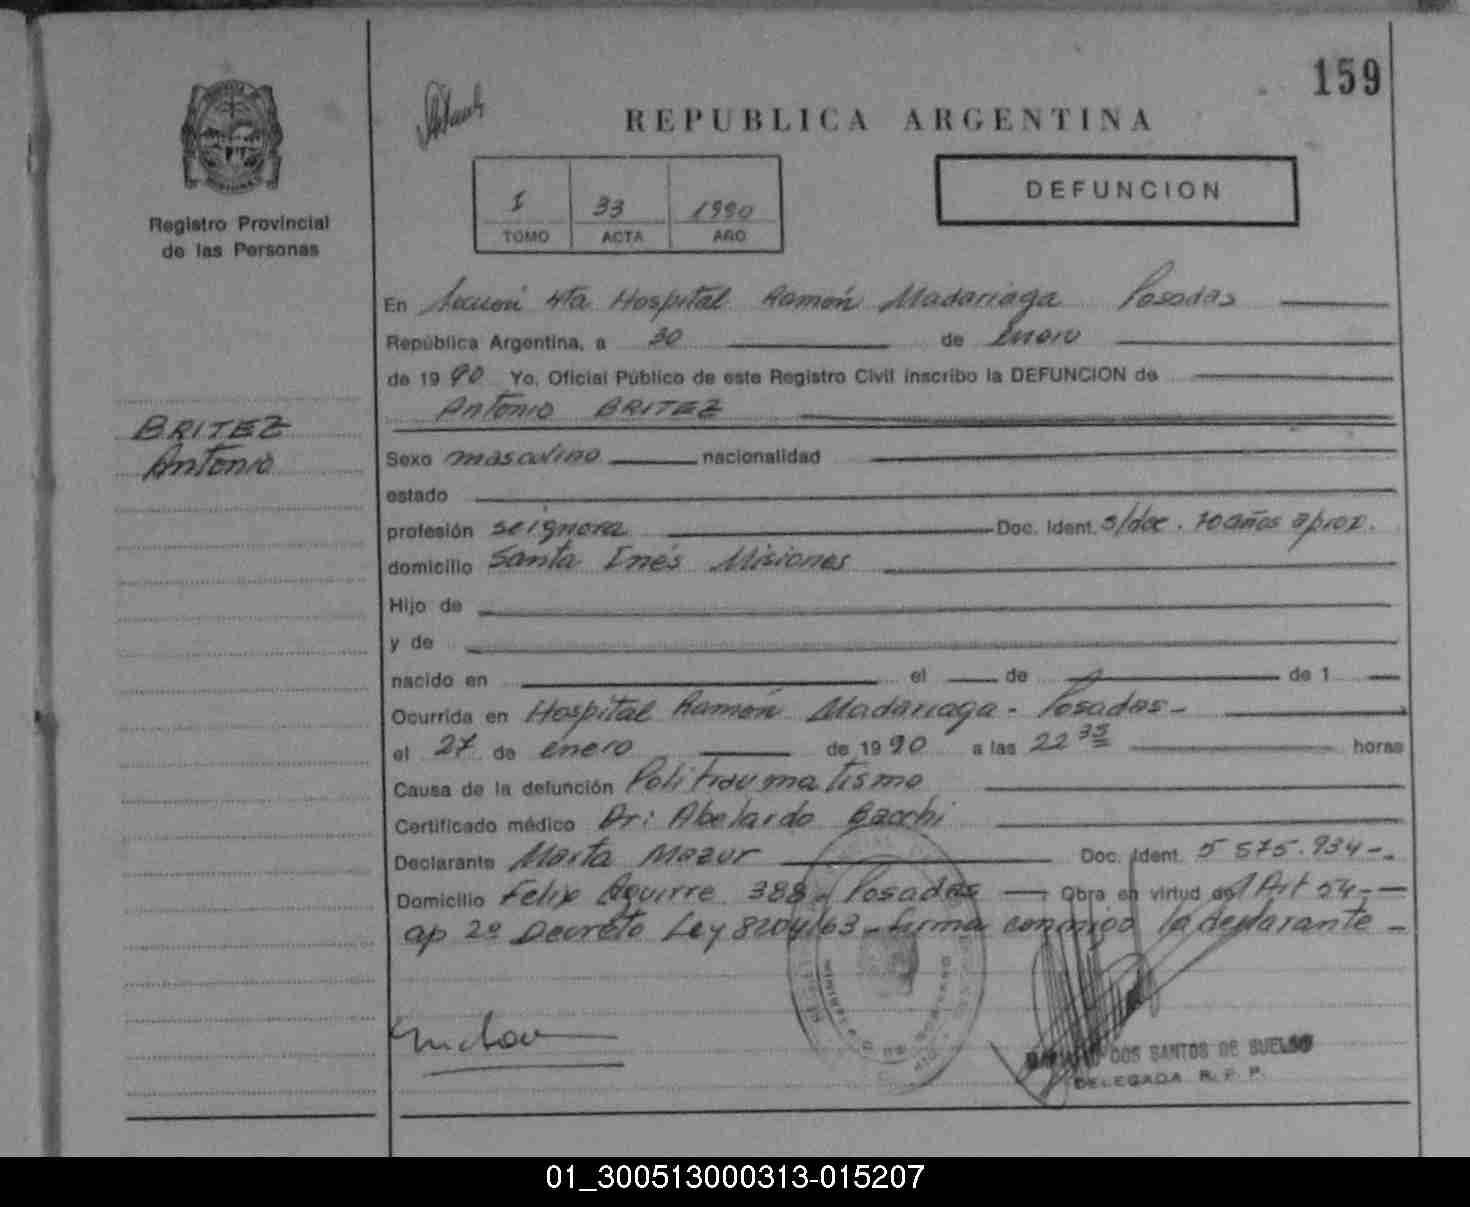 159
REPUBLICA ARGENTINA
Registro Provincial
de las Personas
I 33 1990
TOMO ACTA AÑO
DEFUNCION
BRITEZ
Antonio
En Sección 4ta Hospital Ramón Madariaga Posadas
República Argentina, a 30 de Enero
de 1990 Yo, Oficial Público de este Registro Civil inscribo la DEFUNCION de
Antonio BRITEZ
Sexo masculino nacionalidad
estado
profesión se ignora Doc. Ident. s/doc. 70 años aprox.
domicilio Santa Inés Misiones
Hijo de
y de
nacido en el de de 1
Ocurrida en Hospital Ramón Madariaga - Posadas -
el 27 de enero de 1990 a las 22 35 horas
Causa de la defunción Politraumatismo
Certificado médico Dr: Abelardo Bacchi
Declarante Marta Mazur Doc. Ident. 5 575.934-.
Domicilio Felix Aguirre 388 - Posadas Obra en virtud del Art 54,-
ap 2º Decreto Ley 8204/63 - firma conmigo la declarante -
DOS SANTOS DE BUENO
DELEGADA R. P. P.
01_300513000313-015207